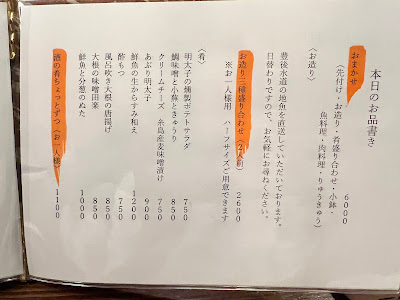 本日のお品書き
おまかせ 6000
（先付け・お造り・肴盛り合わせ・小鉢・
魚料理・肉料理・りゅうきゅう）
（お造り）
豊後水道の地魚を直送していただいております。
日替わりですので、お気軽にお尋ねください。
お造り三種盛り合わせ（2人前） 2600
※お一人様用 ハーフサイズご用意できます
（肴）
明太子の燻製ポテトサラダ 750
鯛味噌と小蕪ときゅうり 850
クリームチーズ 糸島産麦味噌漬け 750
あぶり明太子 900
鮮魚の生からすみ和え 1200
酢もつ 750
風呂吹き大根の唐揚げ 850
大根の味噌田楽 850
鮭魚と分葱のぬた 1000
酒の肴ちょっとずつ（お一人様） 1100